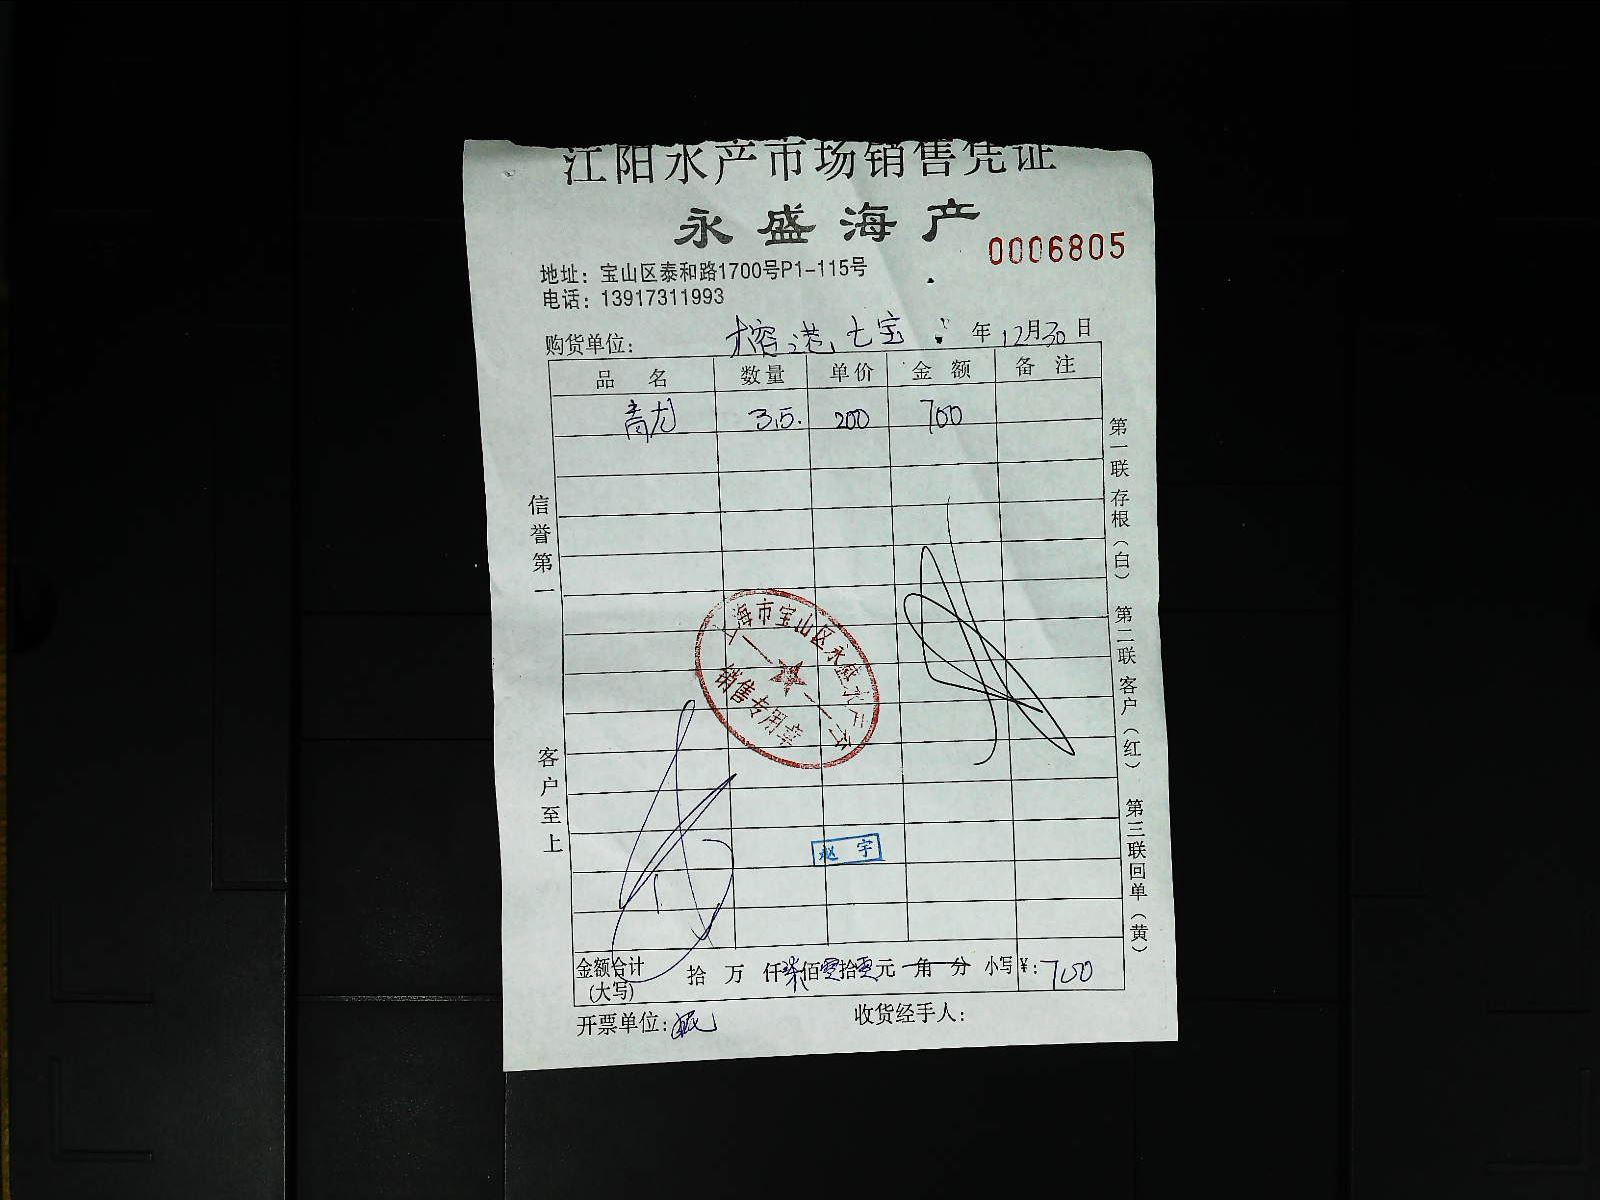 江阳水产市场销售凭证
永盛海产
0006805
地址：宝山区泰和路1700号P1-115号
电话：13917311993
购货单位： 榕港七宝 年 12月30日
品名 数量 单价 金额 备注
青龙 3.5. 200 700
信誉第一
客户至上
第一联存根（白） 第二联客户（红） 第三联回单（黄）
上海市宝山区永盛水产行
销售专用章
赵宇
金额合计（大写） 拾 万 仟柒佰零拾零元 角 分 小写￥：700
开票单位： 收货经手人：